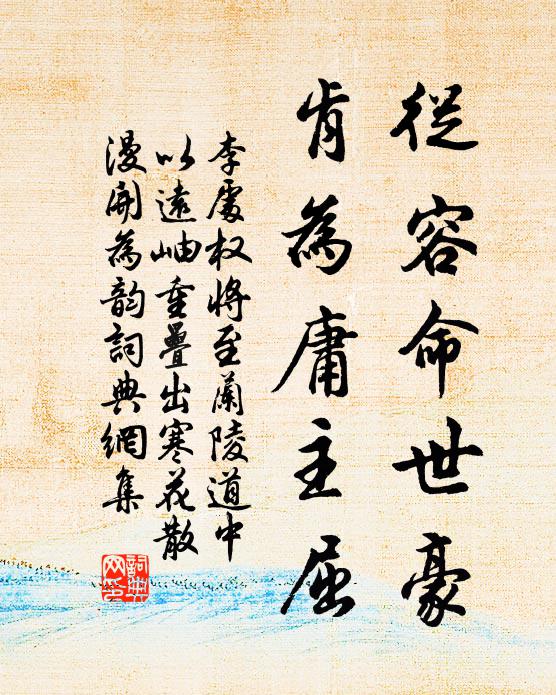 從容命世豪
肯為庸主屈
李處权將至蘭陵道中
以遠岫重疊出寒花散
漫開為韵詞典網集
詞典
网集